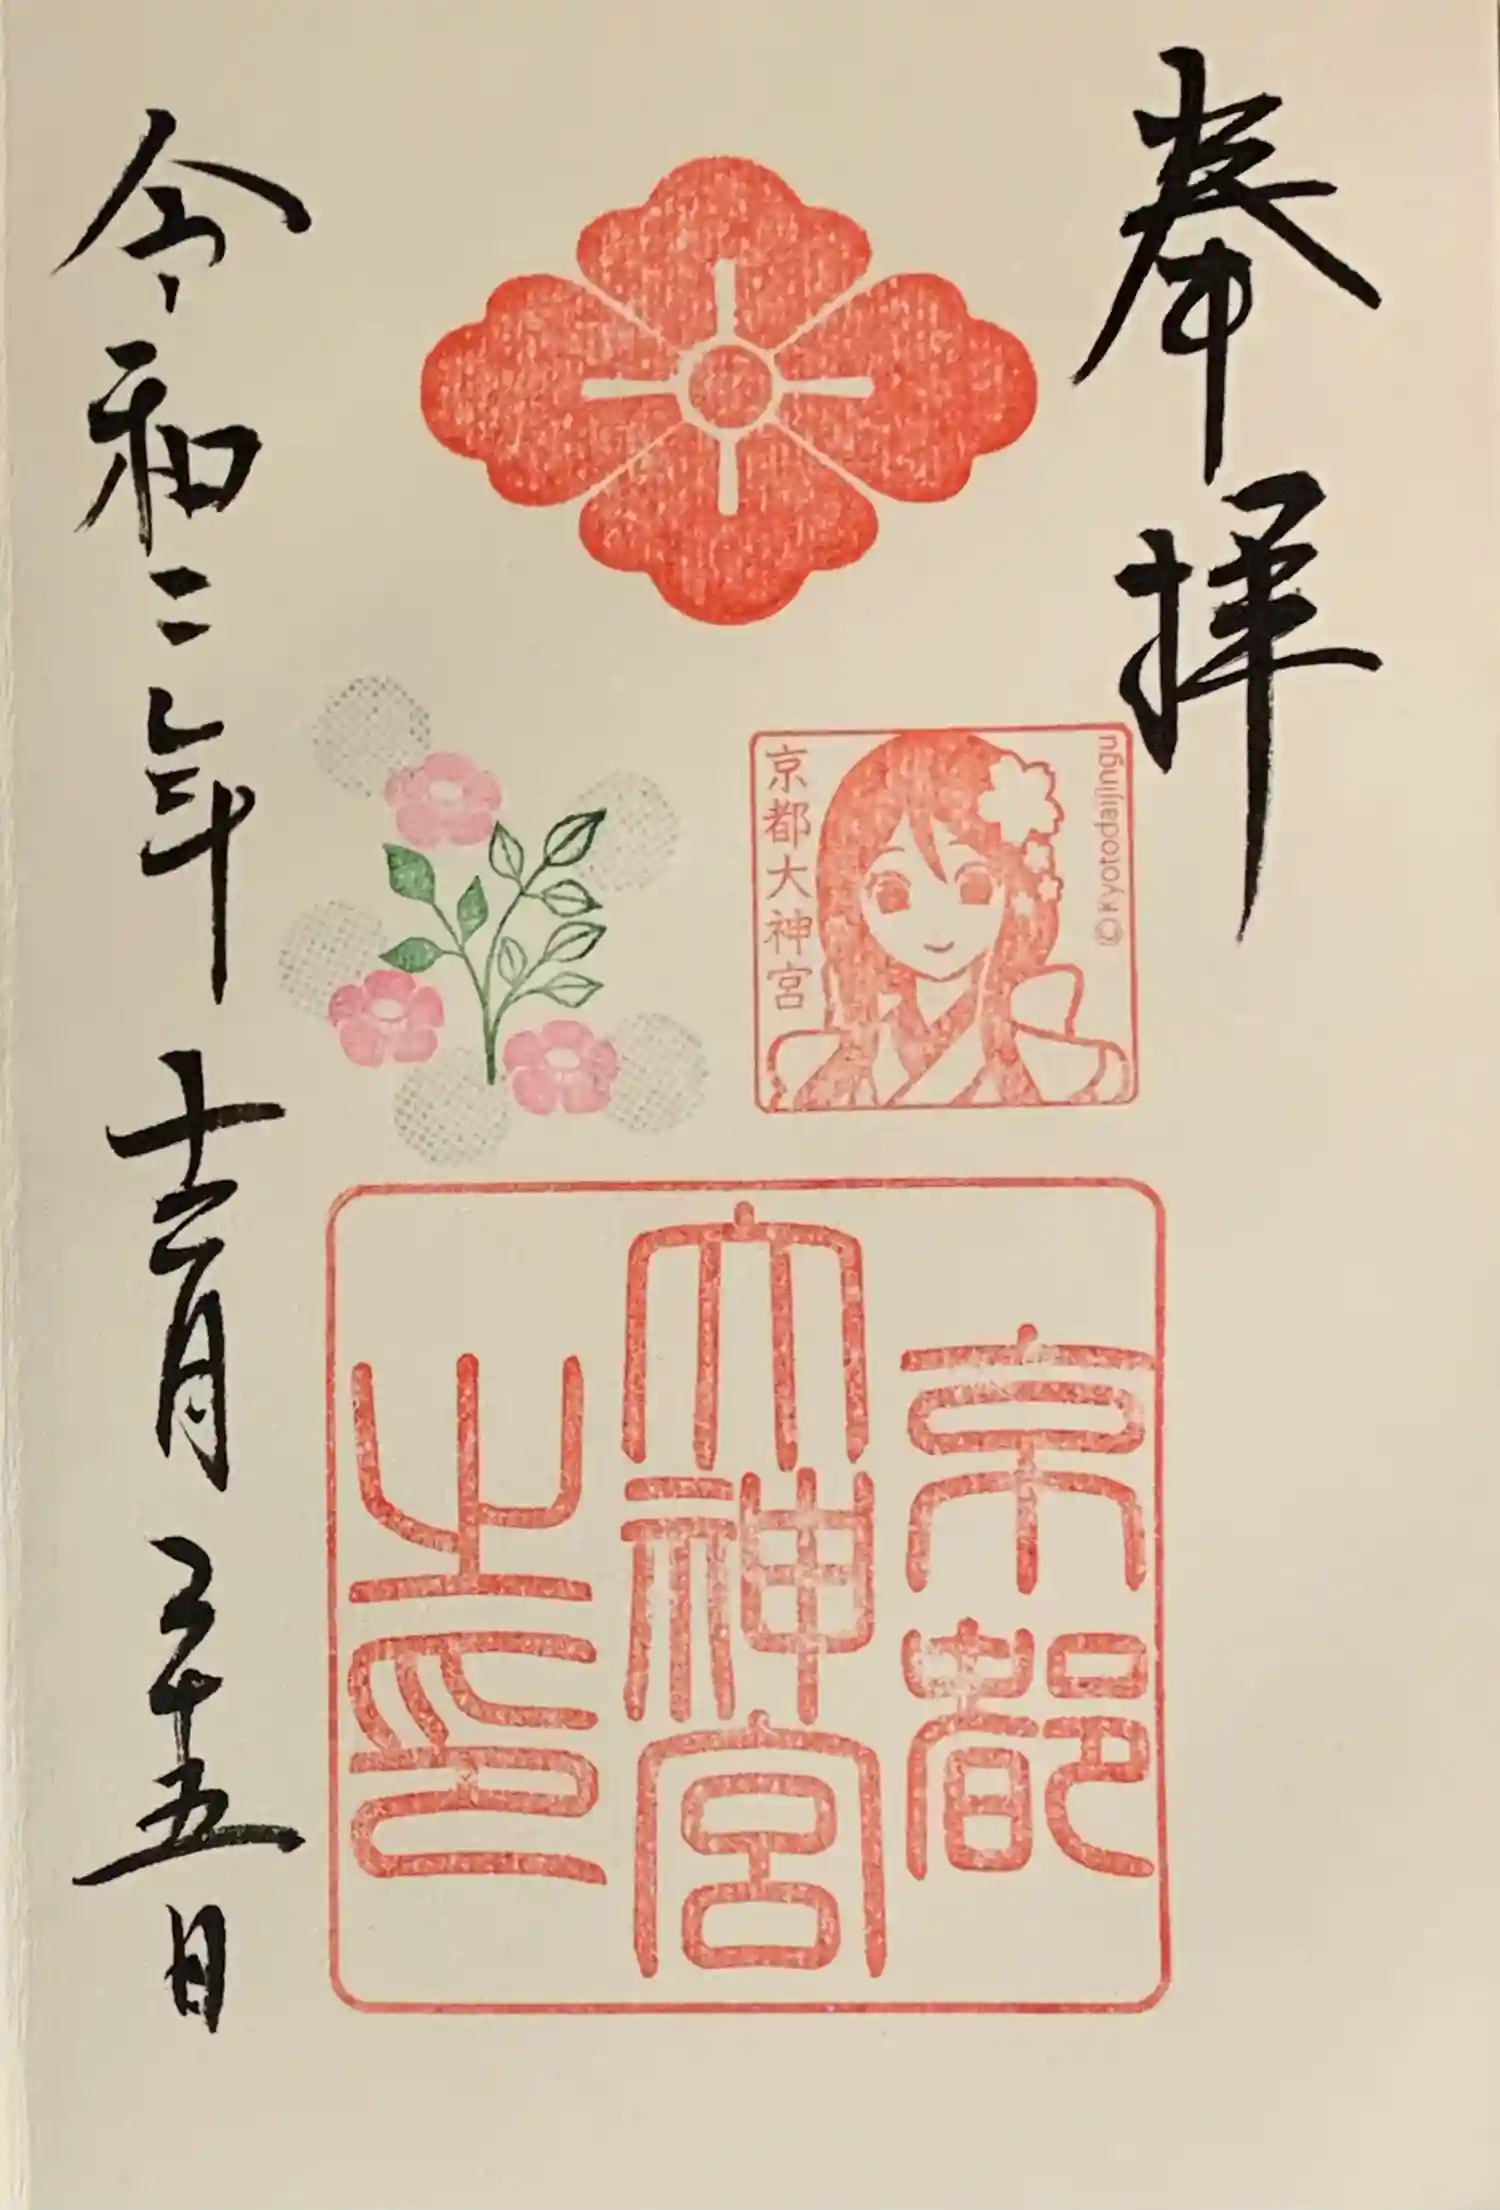 奉拝
京都大神宮
©kyotodaijingu
京都
大神宮
之印
令和二年十二月二十五日